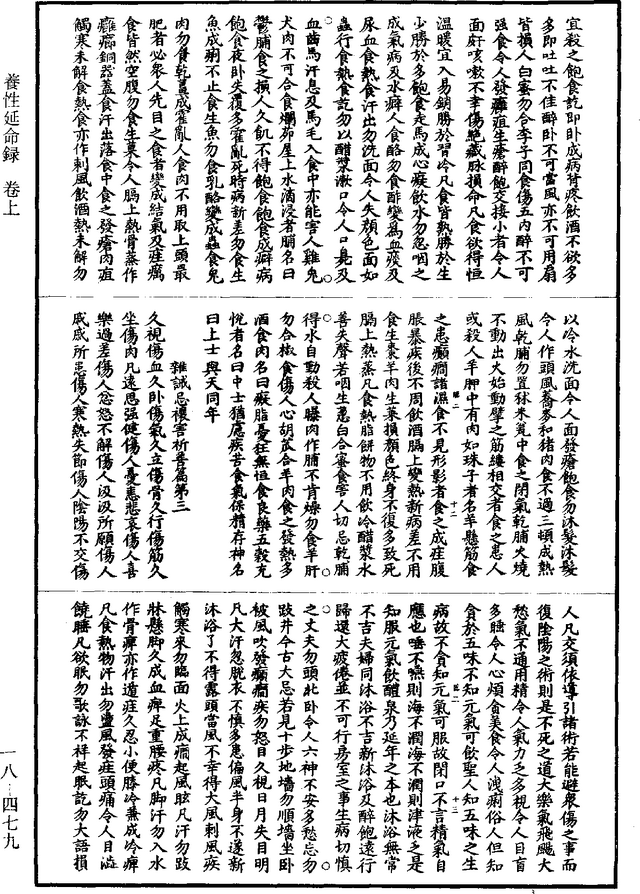 養性延命録 卷上
宜殺之飽食訖即卧成病背疼飲酒不欲多
多即吐吐不佳醉卧不可當風亦不可用扇
皆損人白蜜勿合李子同食傷五内醉不可
强食令人發癰疽生瘡醉飽交接小者令人
面皯咳嗽不幸傷絶藏脉損命凡食欲得恒
温暖宜入易銷勝於習冷凡食皆熟勝於生
少勝於多飽食走馬成心癡飲水勿忽咽之
成氣病及水癖人食酪勿食酢變為血痰及
尿血食熱食汗出勿洗面令人失顔色面如
蟲行食熱食訖勿以醋漿漱口令人口臭及
血齒馬汗息及馬毛入食中亦能害人雞兔
犬肉不可合食爛茆屋上水滴浸者脯名曰
鬱脯食之損人久飢不得飽食飽食成癖病
飽食夜卧失覆多霍亂死時病新差勿食生
魚成痢不止食生魚勿食乳酪變成蟲食兔
肉勿食乾薑成霍亂人食肉不用取上頭最
肥者必衆人先目之食者變成結氣及疰癘
食皆然空腹勿食生菓令人膈上熱骨蒸作
癰癤銅器蓋食汗出落食中食之發瘡肉疽
觸寒未解食熱食亦作刺風飲酒熱未解勿
以冷水洗面令人面發瘡飽食勿沐髮沐髮
令人作頭風蕎麥和猪肉食不過三頓成熱
風乾脯勿置秫米瓮中食之閉氣乾脯火燒
不動出火始動擘之筋縷相交者食之患人
或殺人羊胛中有肉如珠子者名羊懸筋食
之患癲癇諸濕食不見形影者食之成疰腹
脹暴疾後不周飲酒膈上變熱新病差不用
食生棗羊肉生菜損顔色終身不復多致死
膈上熱蒸凡食熱脂餅物不用飲冷醋漿水
善失聲若咽生葱白合蜜食害人切忌乾脯
得水自動殺人曝肉作脯不肯燥勿食羊肝
勿合椒食傷人心胡芘合羊肉食之發熱多
酒食肉名曰癡脂憂狂無恒食良藥五穀充
悦者名曰中士猶慮疾苦食氣保精存神名
曰上士與天同年
雜誡忌禳害祈善篇第三
久視傷血久卧傷氣久立傷骨久行傷筋久
坐傷肉凡遠思强健傷人憂恚悲哀傷人喜
樂過差傷人忿怒不解傷人汲汲所願傷人
戚戚所患傷人寒熱失節傷人陰陽不交傷
人凡交須依導引諸術若能避衆傷之事而
復陰陽之術則是不死之道大樂氣飛颺大
愁氣不通用精令人氣力乏多視令人目盲
多睡令人心煩貪美食令人洩痢俗人但知
貪於五味不知元氣可飲聖人知五味之生
病故不貪知元氣可服故閉口不言精氣自
應也唾不嚥則海不潤海不潤則津液乏是
知服元氣飲醴泉乃延年之本也沐浴無常
不吉夫婦同沐浴不吉新沐浴及醉飽遠行
歸還大疲倦並不可行房室之事生病切慎
之丈夫勿頭北卧令人六神不安多愁忘勿
跂井今古大忌若見十步地墻勿順墻坐卧
被風吹發癲癇疾勿怒目久視日月失目明
凡大汗忽脱衣不慎多患偏風半身不遂新
沐浴了不得露頭當風不幸得大風刺風疾
觸寒來勿臨面火上成癇起風眩凡汗勿跂
牀懸脚久成血痺足重腰疼凡脚汗勿入水
作骨痺亦作遁疰久忍小便膝冷兼成冷痺
凡食熱物汗出勿盪風發疰頭痛令人目澁
饒睡凡欲眠勿歌詠不祥起眠訖勿大語損
一八-四七九